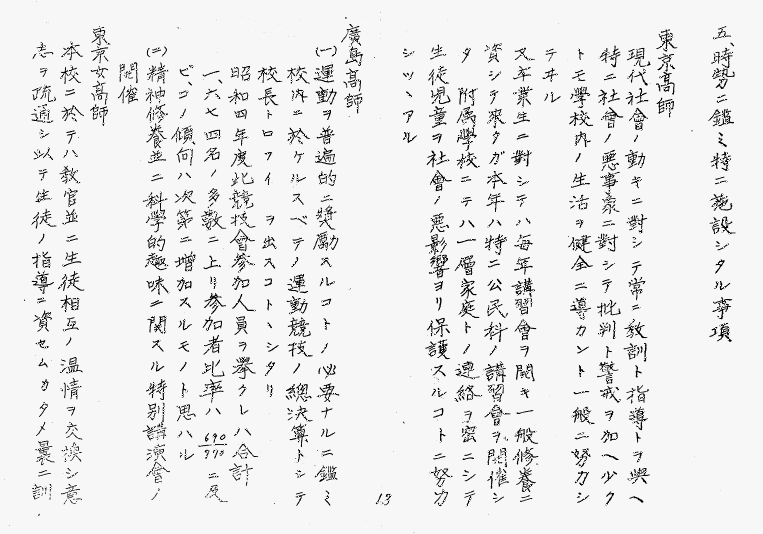 五、時勢ニ鑑ミ特ニ施設シタル事項
東京高師
現代社會ノ動キニ對シテ常ニ教訓ト指導トヲ與ヘ
特ニ社會ノ惡事象ニ對シテ批判ト警戒ヲ加ヘ少ク
トモ學校内ノ生活ヲ健全ニ導カント一般ニ努力シ
テヰル
又卒業生ニ對シテハ毎年講習會ヲ開キ一般修養ニ
資シテ來タガ本年ハ特ニ公民科ノ講習會ヲ開催シ
タ 附属學校ニテハ一層家庭トノ連絡ヲ密ニシテ
生徒児童ヲ社會ノ惡影響ヨリ保護スルコトニ努力
シツヽアル
13
廣島高師
(一)運動ヲ普遍的ニ奨勵スルコトノ必要ナルニ鑑ミ
校内ニ於ケルスベテノ運動競技ノ總決算トシテ
校長トロフイヲ出スコトヽシタリ
昭和四年度此競技會参加人員ヲ擧クレハ合計
一、六七四名ノ多數ニ上リ参加者比率ハ 690/770 ニ及
ビ、コノ傾向ハ次第ニ増加スルモノト思ハル
(二)精神修養並ニ科學的趣味ニ関スル特別講演會ノ
開催
東京女高師
本校ニ於テハ教官並ニ生徒相互ノ温情ヲ交換シ意
志ヲ疏通シ以テ生徒ノ指導ニ資セムカタメ曩ニ訓